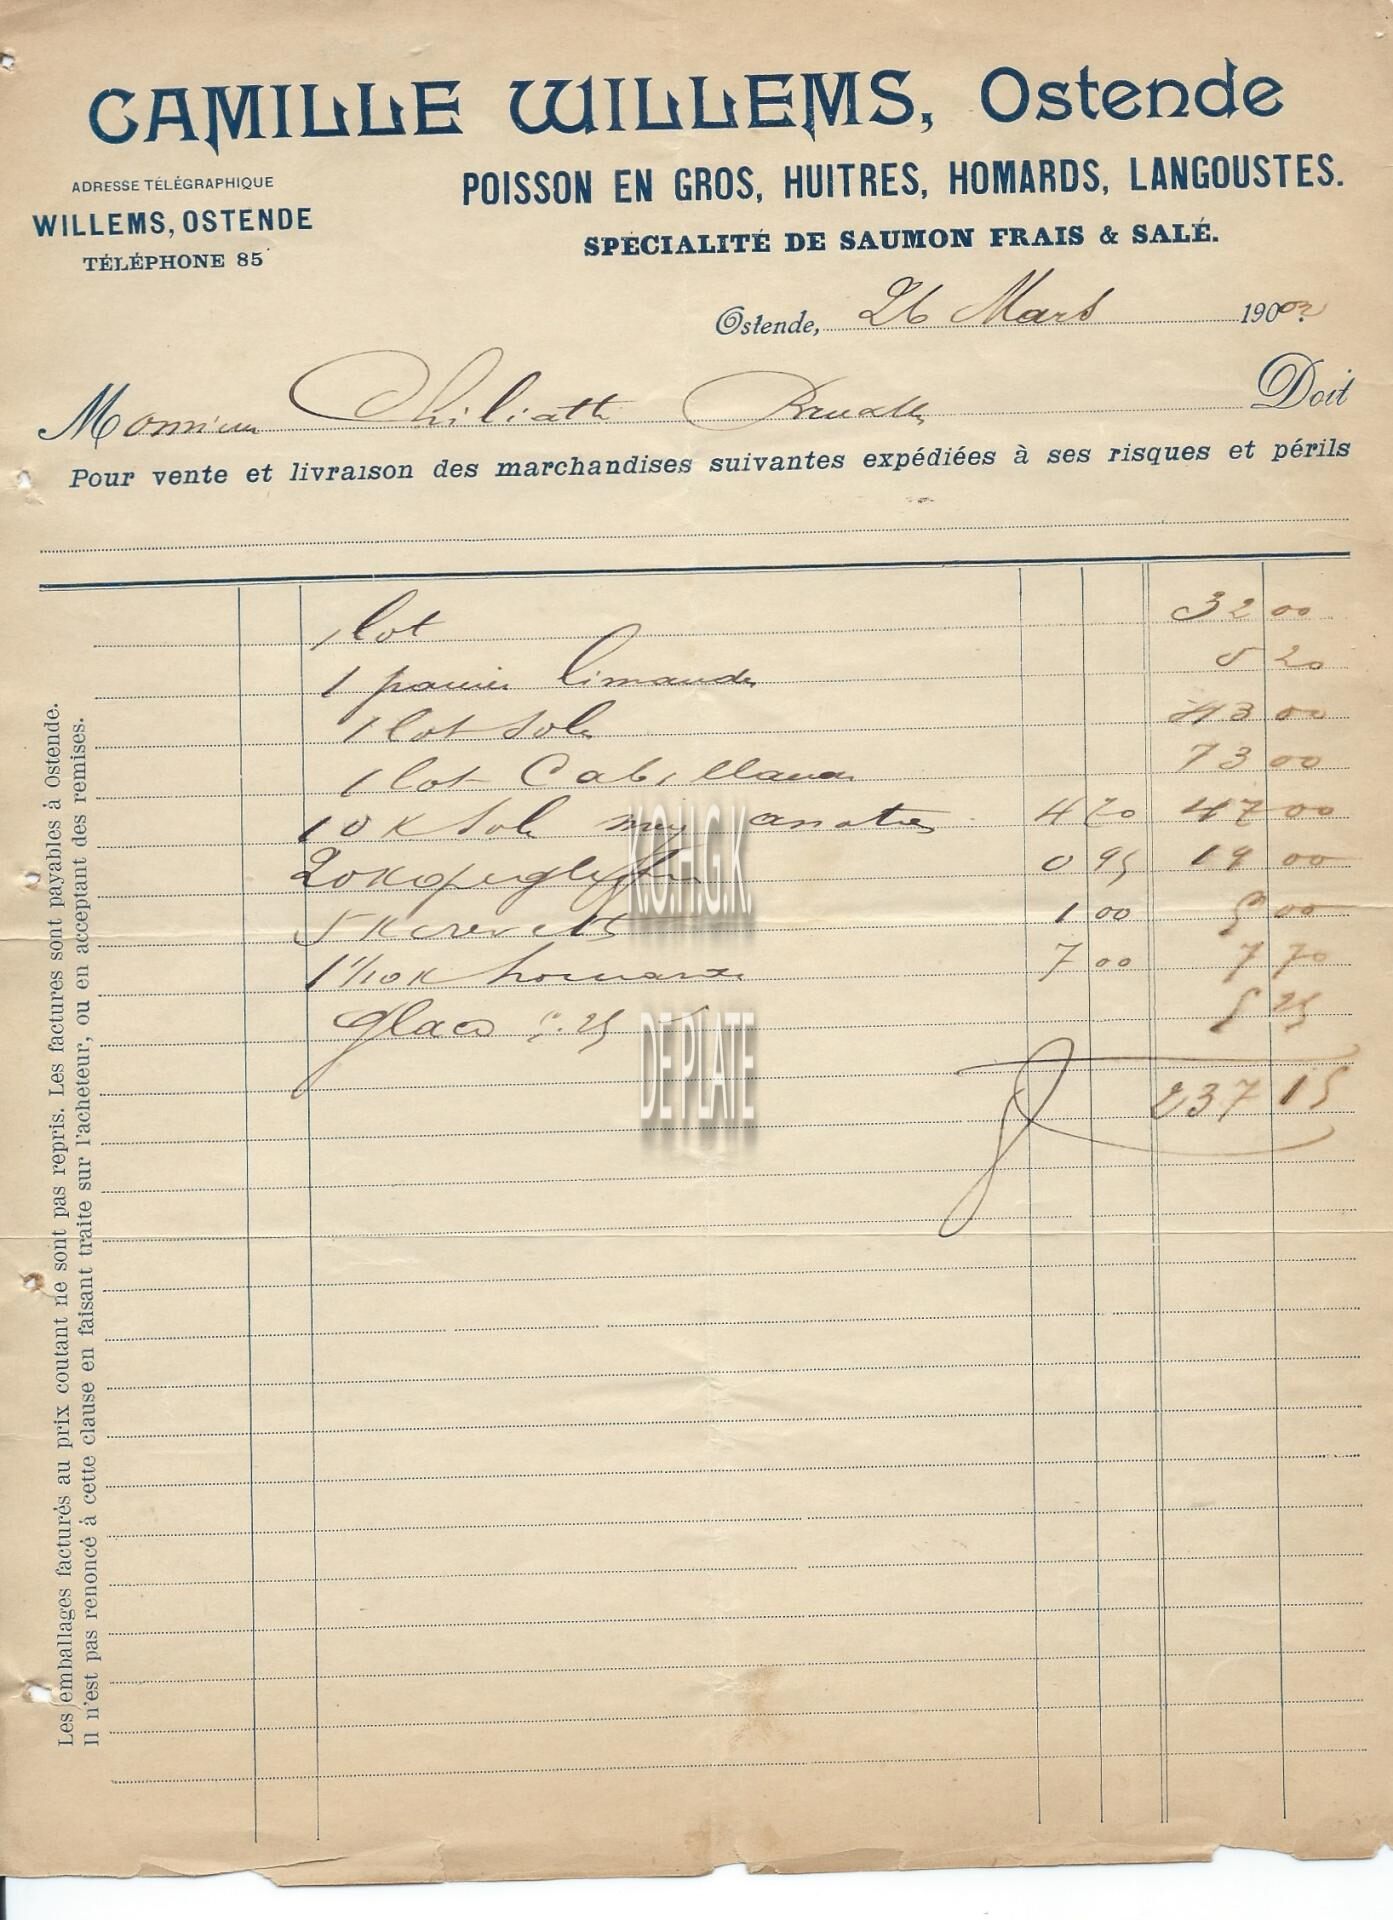 CAMILLE WILLEMS, Ostende
ADRESSE TÉLÉGRAPHIQUE
WILLEMS, OSTENDE
TÉLÉPHONE 85
POISSON EN GROS, HUITRES, HOMARDS, LANGOUSTES.
SPÉCIALITÉ DE SAUMON FRAIS & SALÉ.
Ostende, 26 Mars 190
Monsieur Doit
Pour vente et livraison des marchandises suivantes expédiées à ses risques et périls
1 lot 32 00
1 panier limandes 5 20
1 lot soles 43 00
1 lot Cabillauds 73 00
10 K soles 4 70 47 00
20 K 0 95 19 00
5 K crevettes 1 00 5 00
1 1/10 K homards 7 00 7 70
glace 5.25 5 25
237 15
Les emballages facturés au prix coutant ne sont pas repris. Les factures sont payables à Ostende.
Il n'est pas renoncé à cette clause en faisant traite sur l'acheteur, ou en acceptant des remises.
K.O.H.G.K.
DE PLATE